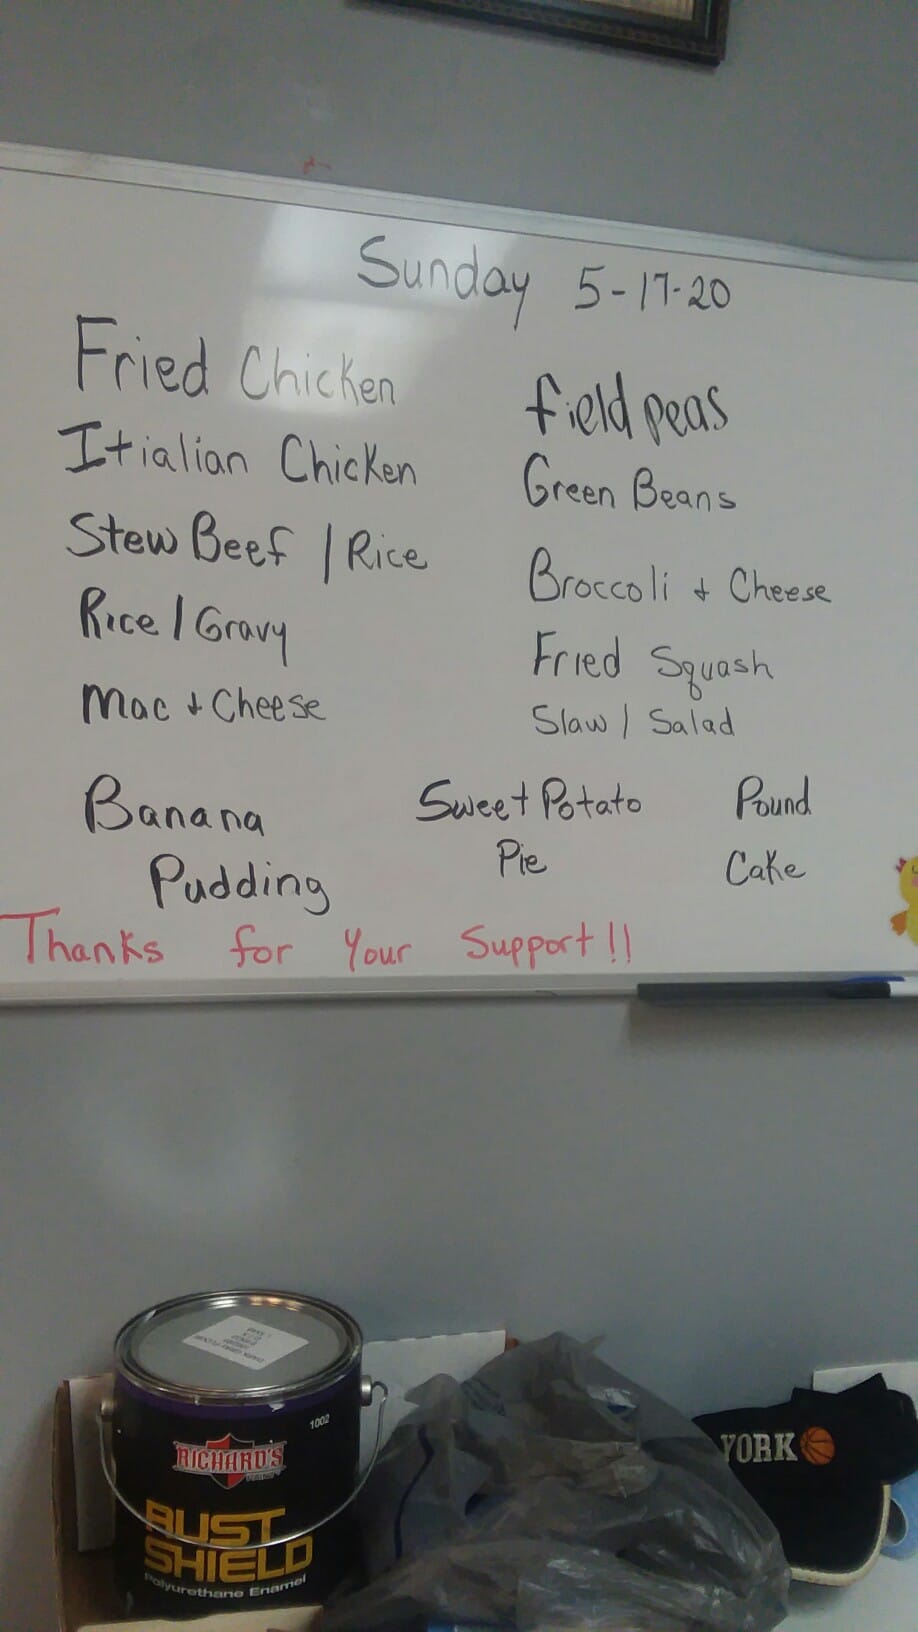 Sunday 5-17-20
Fried Chicken
Itialian Chicken
Stew Beef / Rice
Rice / Gravy
Mac + Cheese
field peas
Green Beans
Broccoli + Cheese
Fried Squash
Slaw / Salad
Banana
Pudding
Sweet Potato
Pie
Pound
Cake
Thanks for Your Support!!
1002
RICHARD'S
RUST
SHIELD
Polyurethane Enamel
YORK